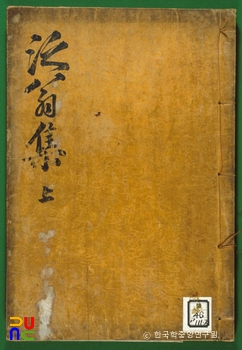 泛翁集 上
© 한국학중앙연구원